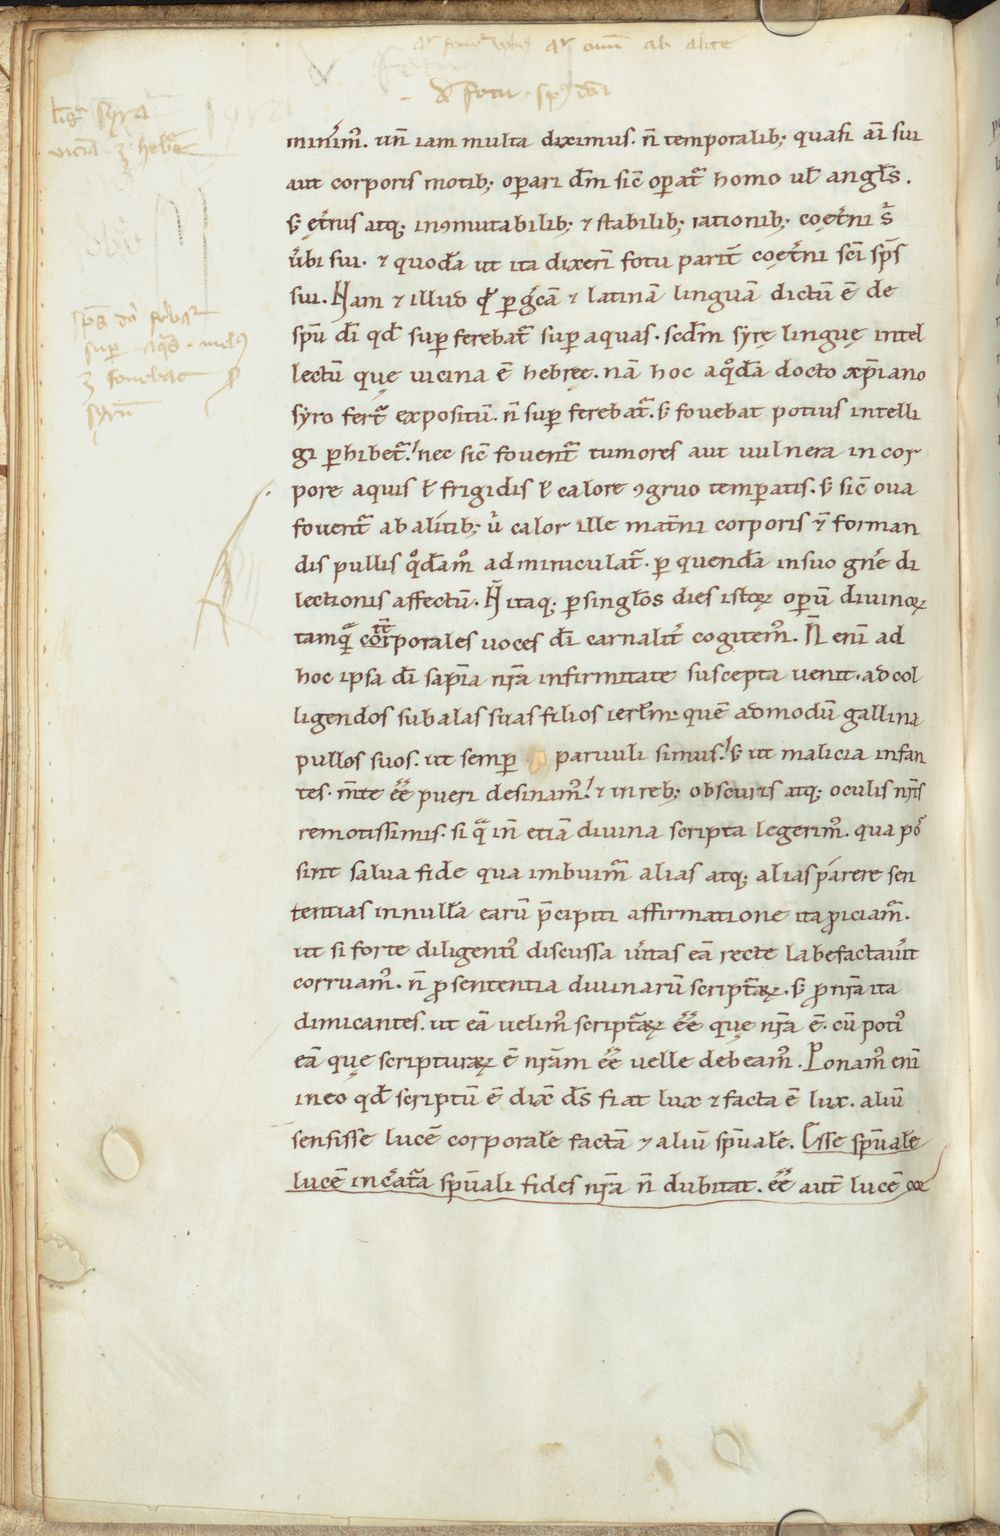 de fotu · sp̄s dn̄i
minim᷒. un̄ iam multa diximus. n̄ temporalib; quasi aı̄ sui
aut corporis motib; oꝑari dm̄ sic̄ oꝑat᷑ homo ul̄ angl̄s.
ꞩ ęt̄nus atq; inꝯmutabilib; & stabilib; rationib; coęt̄ni ꞩ̄
ūbi sui. & quodā ut ita dixeri᷒ fotu parit̄ coęt̄ni sc̄i sp̄s
sui. Nam & illud qđ ꝑ gc̄ā & latinā linguā dictū ē de
sp̄u dı̄ qđ suꝑ ferebat᷑ suꝑ aquas. scdm̄ syrę linguę intel
lectū que uicina ē hebręę. nā hoc aq̊dā docto xp̄iano
syro fert᷑ expositū. n̄ suꝑ ferebat᷑. ꞩ fouebat potius intelli
gi ꝑhibet᷑! nec sic̄ fouent᷑ tumores aut uulnera in cor
pore aquis ł frigidis ł calore ꝯgruo temꝑatis. ꞩ sic̄ oua
fouent᷑ ab alitib; ū calor ille mat̄ni corporis & forman
dis pullis q̊dam̊ adminiculat᷑. ꝑ quendā in suo gn̄e di
lectionis affectū. N̄ itaq; ꝑ singl̄os dies istoꝝ oꝑū diuinoꝝ
tamqᷓ corporales uoces dı̄ carnalit̄ cogitem᷒. N̄ eni᷒ ad
hoc ipsa dı̄ sapı̄a nr̄a infirmitate suscepta uenit. ad col
ligendos sub alas suas filios ierl̄m. quē admodū gallina
pullos suos. ut semꝑ paruuli simus! ꞩ ut malicia infan
tes. m̄te eē pueri desinam᷒! & in reb; obscuris atq; oculis nr̄is
remotissimis. si qᷓ in̄ etiā diuina scripta legerim᷒. qua pos̄
sint salua fide qua imbuim᷑ alias atq; alias parere sen
tentias in nullā earū p̄cipiti affirmatione ita ꝓiciam᷑.
ut si forte diligenti᷒ discussa ūitas eā recte labefactaūit
corruam᷒. n̄ ꝓ sententia diuinarū script̄aꝝ. ꞩ ꝓ nr̄a ita
dimicantes. ut eā uelim᷒ script̄aꝝ eē que nr̄a ē. cū poti᷒
eā que scripturaꝝ ē nr̄am eē uelle debeam᷒. Ponam᷒ eni᷒
in eo qđ scriptū ē dix̄ ds̄ fiat lux & facta ē lux. aliū
sensisse lucē corporalē factā & aliū sp̄ualē. Esse sp̄ualē
lucē in c̄at᷑a sp̄uali fides nr̄a n̄ dubitat. eē aut̄ lucē
lı̄g᷑ syra
uicina ꝫ hebꝛ̄ę
sp̄s dı̄ fereba᷑
suꝑ aq̄s · meli᷒
ꝫ fouebat ꝑ
syrū